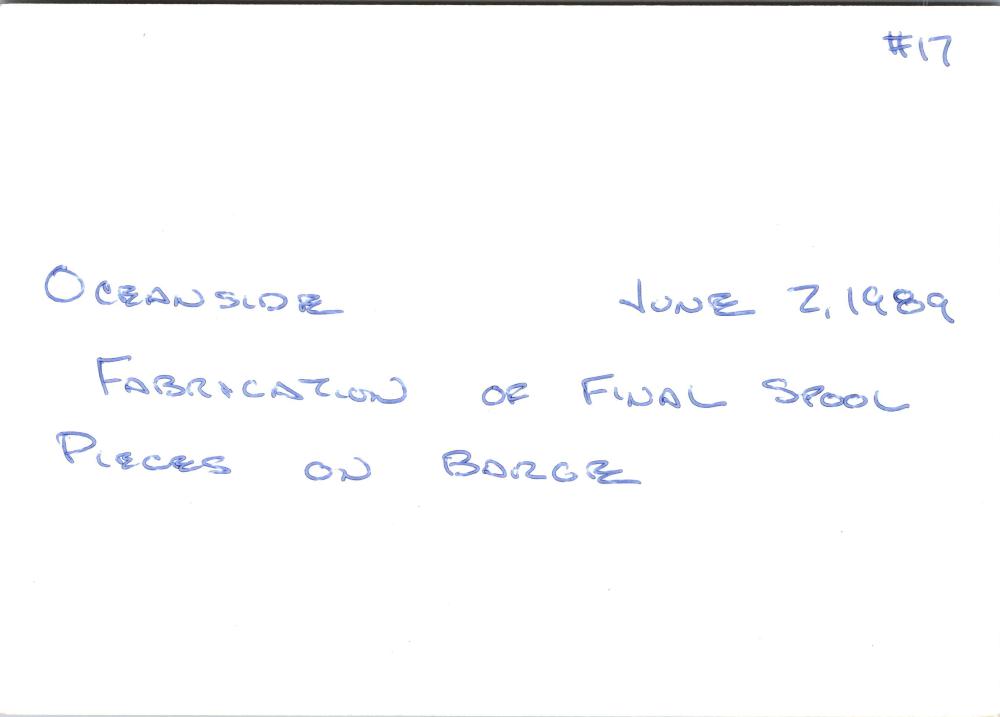 #17
OCEANSIDE JUNE 2, 1989
FABRICATION OF FINAL SPOOL
PIECES ON BARGE